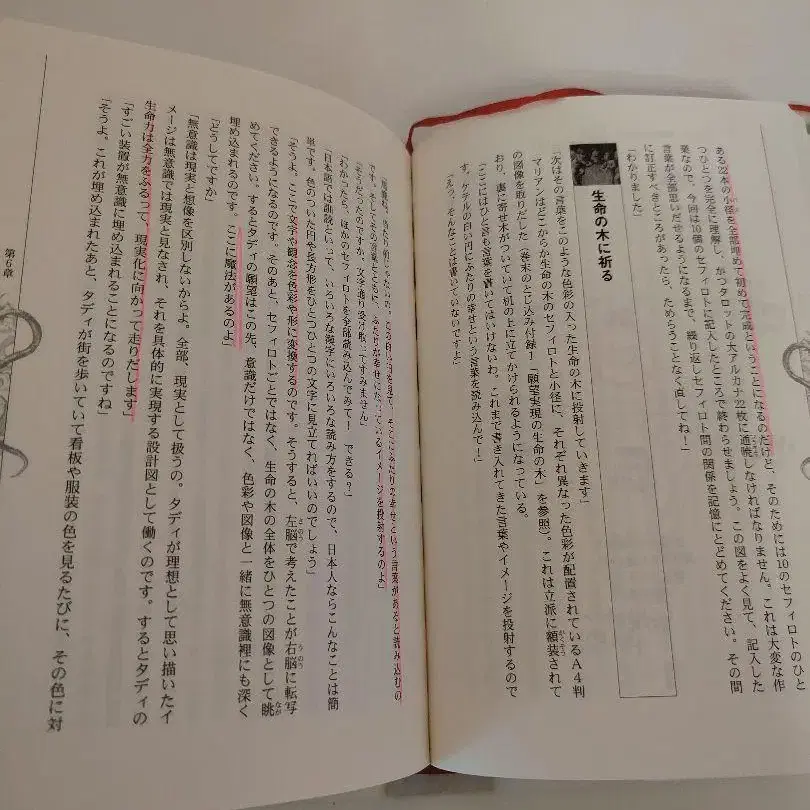 ある22本の小径を全部埋めて初めて完成ということになるのだけど、そのためには10のセフィロトのひと
つひとつを完全に理解し、かつタロットの大アルカナ22枚に通暁しなければなりません。これは大変な作
業なので、今回は10個のセフィロトに記入したところで終わらせましょう。この図をよく見て、記入した
言葉が全部思いだせるようになるまで、繰り返しセフィロト間の関係を記憶にとどめてください。その間
に訂正すべきところがあったら、ためらうことなく直してね！」
「わかりました」
生命の木に祈る
「次はその言葉をこのような色彩の入った生命の木に投射していきます」
マリアンはどこからか生命の木のセフィロトと小径に、それぞれ異なった色彩が配置されているA4判
の図像を取りだした（巻末のとじ込み付録！「願望実現の生命の木」を参照）。これは立派に額装されて
おり、裏に寄せ木がついていて机の上に立てかけられるようになっている。
「ここにはひと言も言葉を書いてはいけないわ。これまで書き入れてきた言葉やイメージを投射するので
す。ケテルの白い円にふたりの幸せという言葉を読み込んで！」
「えっ、そんなことは書いていないですよ」
です。そしてその言葉とともに、ふたりが幸せになっているイメージを投射するのよ」
「そうだったのですか。文字通り受け取ってすみません」
「わかったら、ほかのセフィロトを全部読み込んでみて！　できる？」
「日本語では訓読といって、いろいろな漢字にいろいろな読み方をするので、日本人ならこんなことは簡
単です。色のついた円や長方形をひとつひとつの文字に見立てればいいのでしょう」
「そうよ。ここで文字や観念を色彩や形に変換するのです。そうすると、左脳で考えたことが右脳に転写
できるようになるのです。そのあと、セフィロトごとではなく、生命の木の全体をひとつの図像として眺
めてください。するとタディの願望はこの先、意識だけではなく、色彩や図像と一緒に無意識裡にも深く
埋め込まれるのです。ここに魔法があるのよ」
「どうしてですか」
「無意識は現実と想像を区別しないからよ。全部、現実として扱うの。タディが理想として思い描いたイ
メージは無意識では現実と見なされ、それを具体的に実現する設計図として働くのです。するとタディの
生命力は全力をふるって、現実化に向かって走りだします」
「すごい装置が無意識に埋め込まれることになるのですね」
「そうよ。これが埋め込まれたあと、タディが街を歩いていて看板や服装の色を見るたびに、その色に対
第6章